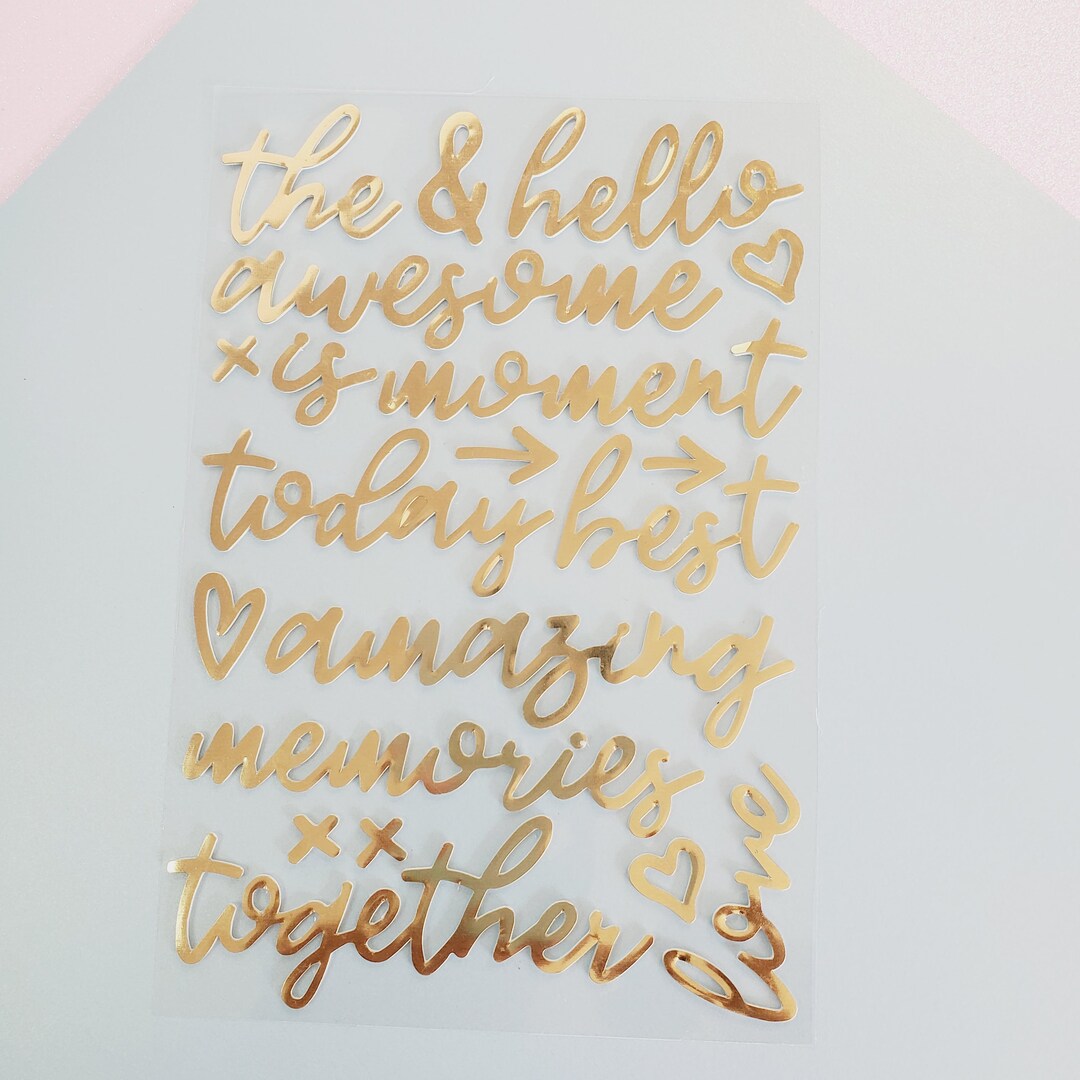 the & hello
awesome
x is moment
today → best →
amazing
memories
x x
together
love